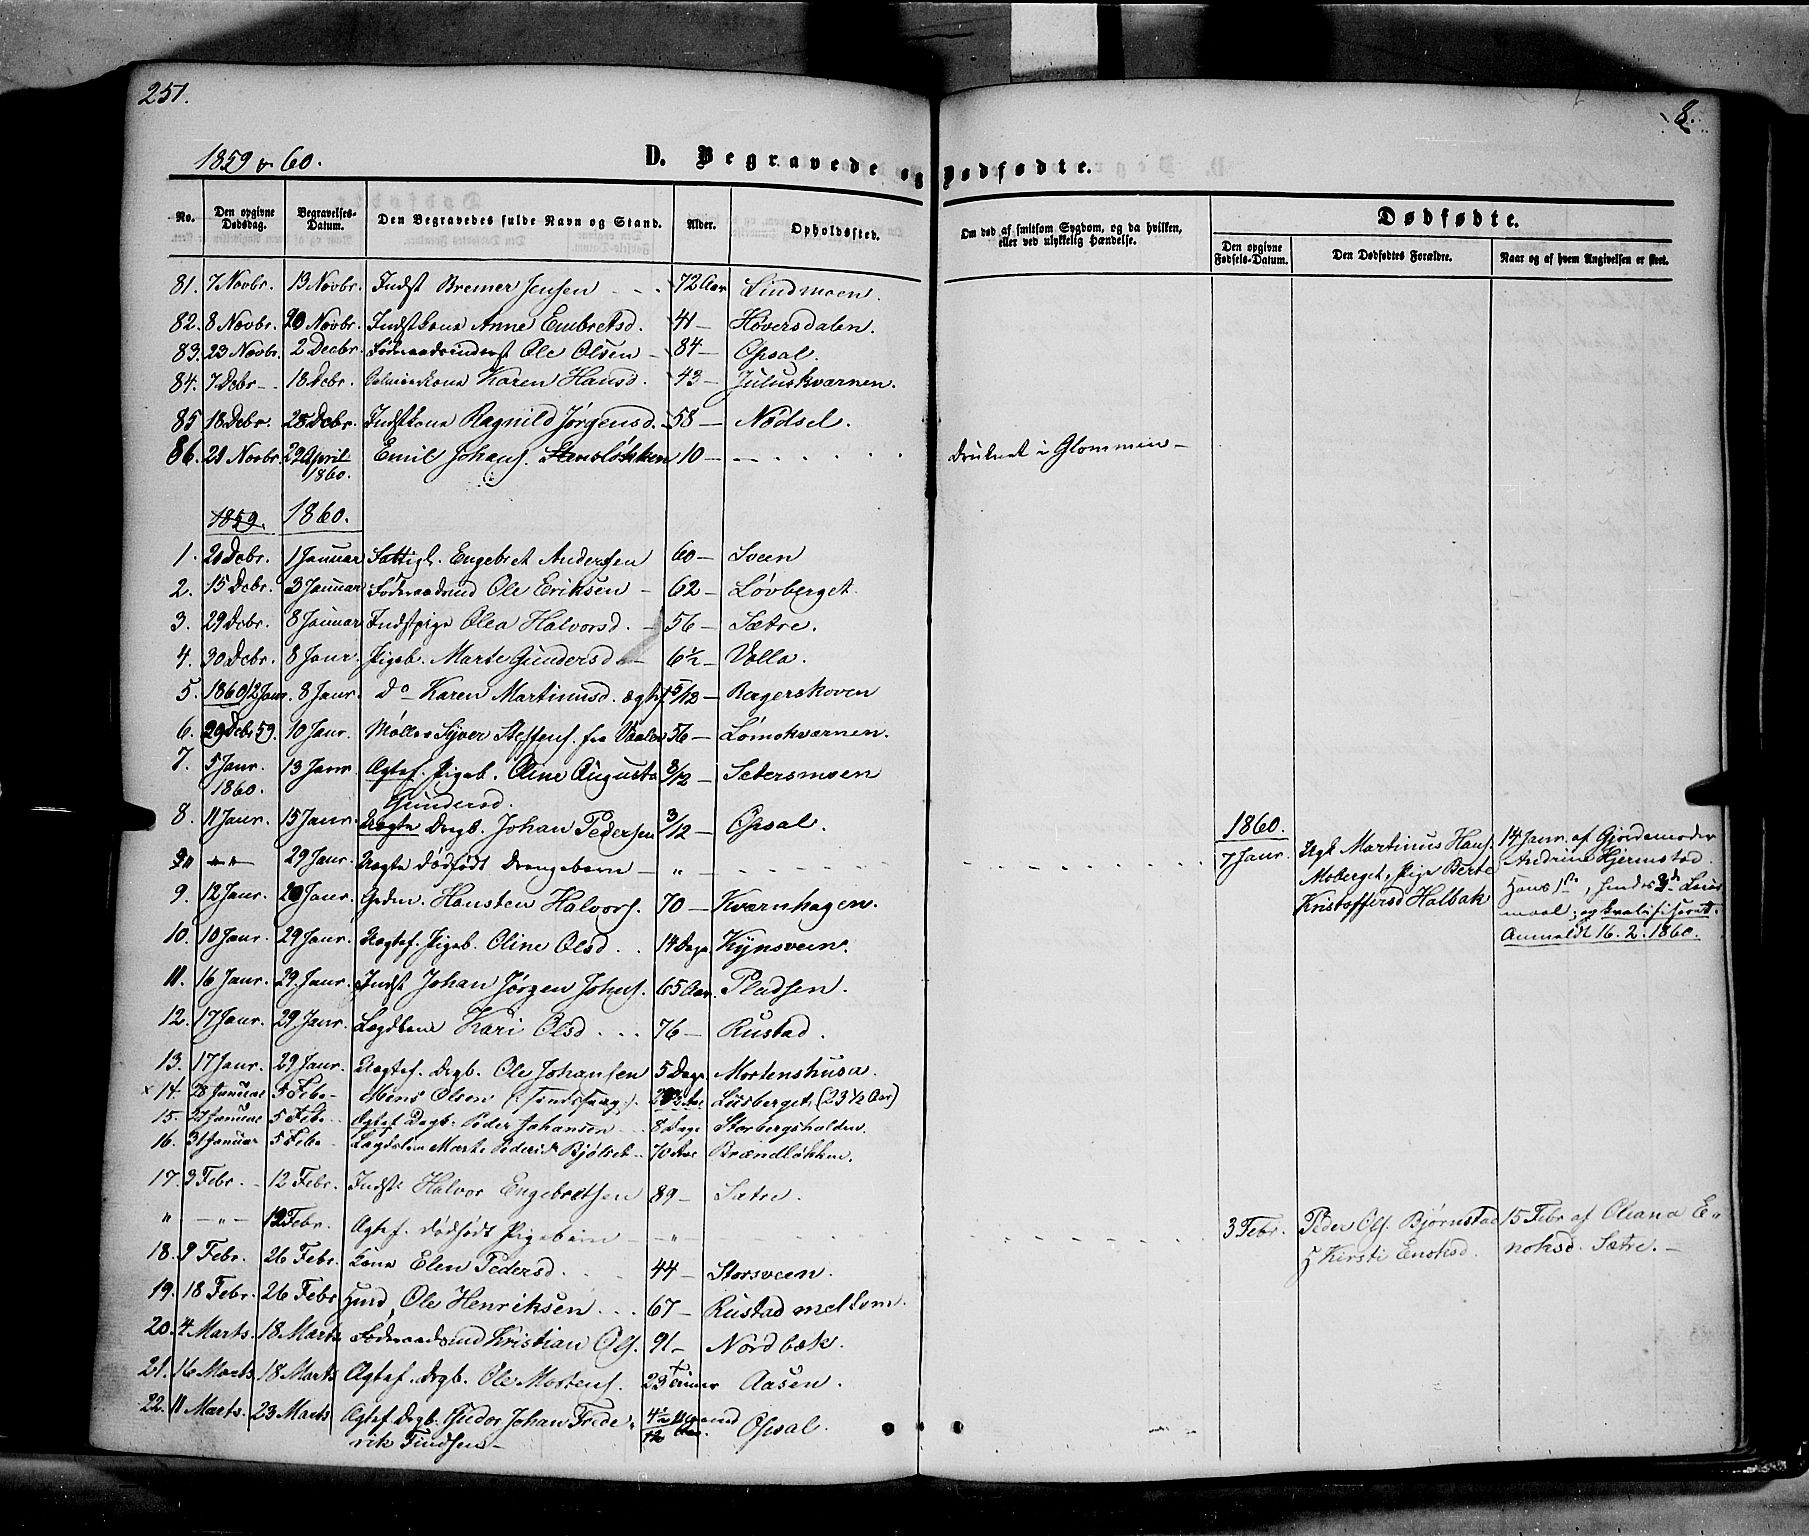 251.
8.
1859 & 60.
D. Begravede og Dødfødte.
No. Den opgivne Dødsdag. Begravelses-Datum. Den Begravedes fulde Navn og Stand. Alder. Opholdssted. Om død af smitsom Sygdom, og da hvilken, eller ved ulykkelig Hændelse. Dødfødte.
Den opgivne Fødsels-Datum. Den Dødfødtes Forældre. Naar og af hvem Angivelsen er skeet.
81. 7 Novbr. 13 Novbr. Indst Bremer Jensen 72 Aar Lindmoen.
82. 8 Novbr. 20 Novbr. Indstkone Anne Embretsd. 41 — Høversdalen.
83. 23 Novbr. 2 Decbr. Føderaadsinderst Ole Olsen 84 — Opsal.
84. 7 Dcbr. 18 Dcbr. Karen Hansd. 43 — Juluskværnen.
85 18 Dcbr. 28 Dcbr. Indstkone Ragnild Jørgensd. 58 — Nødsel.
86. 21 Novbr. 29 April 1860. Emil Johans. Stensløkken 10 — Druknet i Glommen —
1859. 1860.
1. 20 Dcbr. 1 Januar Fattigl. Engebret Andersen 60 — Sveen
2. 15 Dcbr. 3 Januar Føderaadmd Ole Eriksen — 62 — Løvberget.
3. 29 Dcbr. 8 Januar Indstpige Olea Halvorsd. — 56 — Sætre.
4. 30 Dcbr. 8 Janr. Pigeb. Marte Gundersd — 6½ — Volla.
5. 1860 2 Janr. 8 Janr. Do Karen Martinusd. ægtef 5/12 — Bagerskoven
6. 29 Dcbr 59. 10 Janr. Møller Syver Steffens. fra Vaaler 56 — Lømokværnen.
7. 5 Janr. 1860. 13 Janr Ægtef. Pigeb. Oline Augusta Gundersd. 8/12 — Sætersmoen
8. 11 Janr. 15 Janr. Uægte Drgb. Johan Pedersen 3/12 — Opsal.
" — " — 29 Janr. Uægte dødfødt Drengebarn — " — 1860. 7 Janr. Ugk Martinus Hans. Moberget, Pige Berte Kristoffersd Halbak 14 Janr. af Gjordemoder Andrine Hjermstad. Hans 1ste, hendes 3de Leiermaal; og kvalificeret. Anmeldt 16. 2. 1860.
9. 12 Janr. 20 Janr. Gdm. Hansten Halvors. 70 — Kværnhagen.
10. 10 Janr. 29 Janr. Uægtef. Pigeb. Oline Olsd. 14 Dage Kynsveen.
11. 16 Janr. 29 Janr. Indst Johan Jørgen Johns. 65 Aar. Pladsen.
12. 17 Janr. 29 Janr. Kari Olsd. 76 — Rustad.
13. 17 Janr. 29 Janr. Uægtef. Drgb. Ole Johansen 5 Dage Mortenshusa.
× 14. 28 Januar 5 Febr. Mons Olsen Lusberget (23½ Aar)
15. 27 Januar 5 Febr. Ægtef Drgb. Peder Johansen 8 Dage Storbergshalden.
16. 31 Januar 5 Febr. Marte Pedersd. Bjølset 70 Aar Brændløkken.
17. 3 Febr. 12 Febr. Indst. Halvor Engebretsen 89 — Sætre.
" — " — 12 Febr. Ægtef. dødfødt Pigebarn — " — 3 Febr. Peder Ols. Bjørnstad & Kersti Enoksd. 15 Febr af Oleana Enoksd. Sætre. —
18. 9 Febr. 26 Febr. Kone Elen Pedersd. 44 — Storsveen.
19. 18 Febr. 26 Febr Hmd. Ole Henriksen 67 — Rustad mellom.
20. 4 Marts. 18 Marts Føderaadsmd Kristian Ols. 91 — Nordbæk.
21. 16 Marts 18 Marts Ægtef. Drgb. Ole Mortens. 23 Timer Aasen.
22. 11 Marts. 23 Marts Ægtef. Drgb. Gudor Johan Frederik Findsen — Opsal.